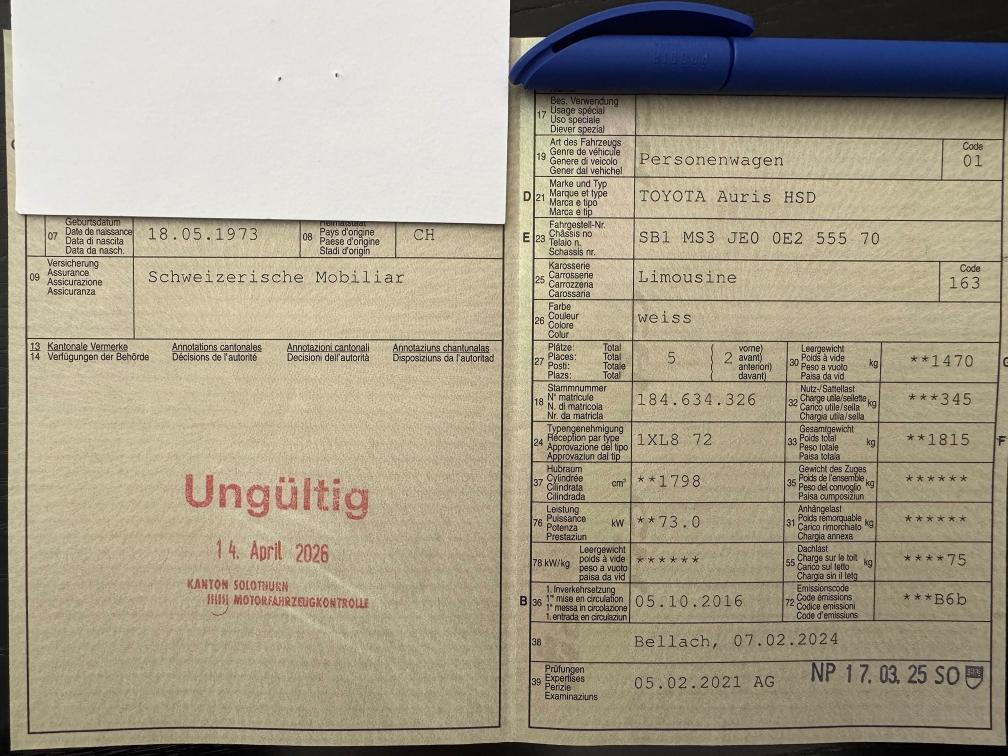 07 Geburtsdatum
Date de naissance
Data di nascita
Data da nasch.
18.05.1973
08
Pays d'origine
Paese d'origine
Stadi d'origin
CH
09 Versicherung
Assurance
Assicurazione
Assicuranza
Schweizerische Mobiliar
13 Kantonale Vermerke Annotations cantonales Annotazioni cantonali Annotaziuns chantunalas
14 Verfügungen der Behörde Décisions de l'autorité Decisioni dell'autorità Disposiziuns da l'autoritad
Ungültig
14. April 2026
KANTON SOLOTHURN
MOTORFAHRZEUGKONTROLLE
17 Bes. Verwendung
Usage spécial
Uso speciale
Diever spezial
19 Art des Fahrzeugs
Genre de véhicule
Genere di veicolo
Gener dal vehichel
Personenwagen
Code
01
D 21 Marke und Typ
Marque et type
Marca e tipo
Marca e tip
TOYOTA Auris HSD
E 23 Fahrgestell-Nr.
Châssis no
Telaio n.
Schassis nr.
SB1 MS3 JE0 0E2 555 70
25 Karosserie
Carrosserie
Carrozzeria
Carossaria
Limousine
Code
163
26 Farbe
Couleur
Colore
Colur
weiss
27 Plätze: Total
Places: Total
Posti: Totale
Plazs: Total
5 2
vorne)
avant)
anteriori)
davant)
30 Leergewicht
Poids à vide
Peso a vuoto
Paisa da vid
kg
**1470
G
18 Stammnummer
N° matricule
N. di matricola
Nr. da matricla
184.634.326
32 Nutz-/Sattellast
Charge utile/sellette
Carico utile/sella
Chargia utila/sella
kg
***345
24 Typengenehmigung
Réception par type
Approvazione del tipo
Approvaziun dal tip
1XL8 72
33 Gesamtgewicht
Poids total
Peso totale
Paisa totala
kg
**1815
F
37 Hubraum
Cylindrée
Cilindrata
Cilindrada
cm³
**1798
35 Gewicht des Zuges
Poids de l'ensemble
Peso del convoglio
Paisa cumposiziun
kg
******
76 Leistung
Puissance
Potenza
Prestaziun
kW
**73.0
31 Anhängelast
Poids remorquable
Carico rimorchiato
Chargia annexa
kg
******
78 kW/kg Leergewicht
poids à vide
peso a vuoto
paisa da vid
******
55 Dachlast
Charge sur le toit
Carico sul tetto
Chargia sin il tetg
kg
****75
B 36 1. Inverkehrsetzung
1re mise en circulation
1a messa in circolazione
1. entrada en circulaziun
05.10.2016
72 Emissionscode
Code émissions
Codice emissioni
Code d'emissiuns
***B6b
38 Bellach, 07.02.2024
39 Prüfungen
Expertises
Perizie
Examinaziuns
05.02.2021 AG
NP 17.03.25 SO